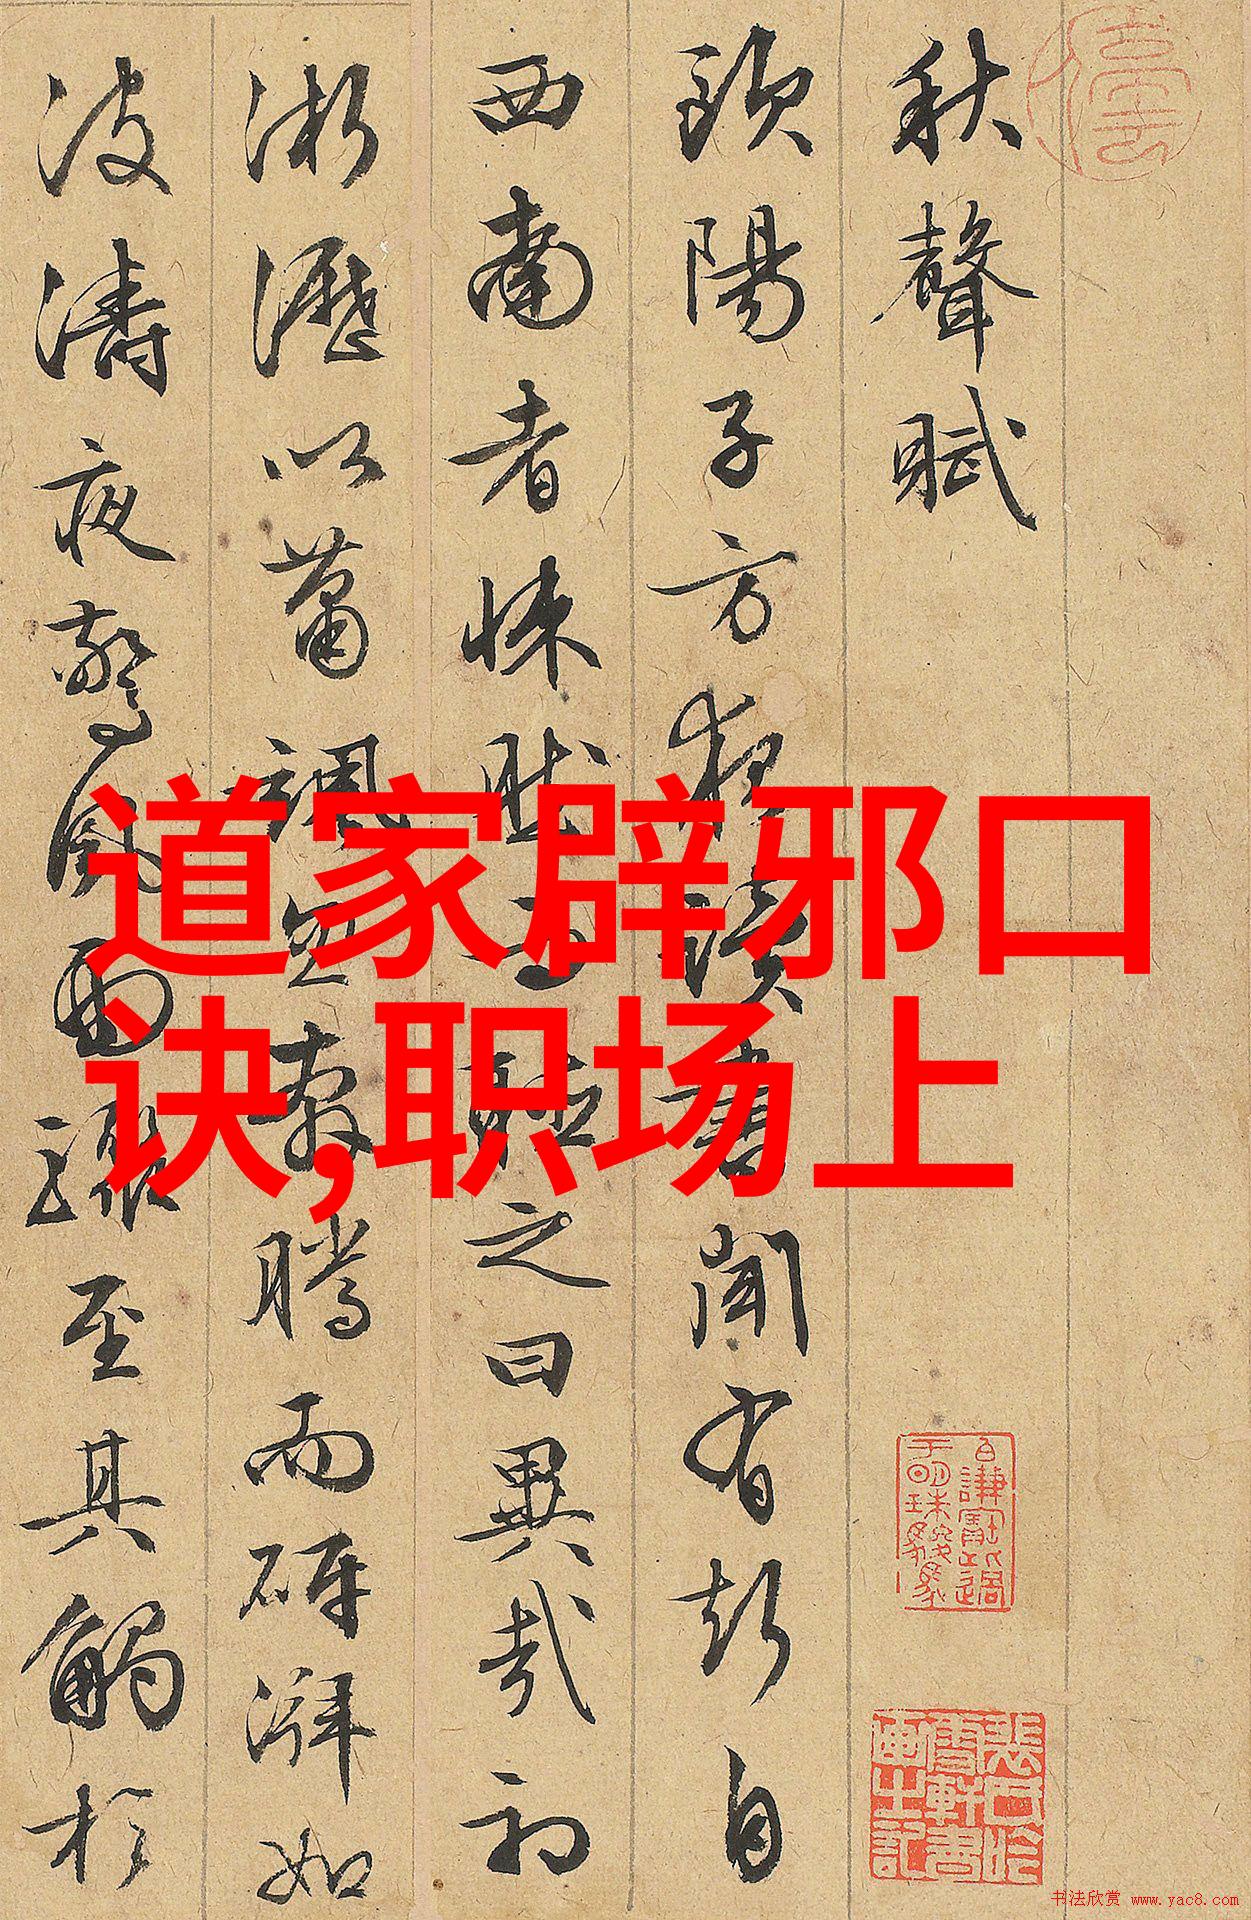 秋聲賦
歐陽子方夜讀書聞有聲自
西南者悚然而聽之曰異哉初
淅瀝以蕭颯忽奔騰而砰湃如
波濤夜驚風雨驟至其觸於
道家辟邪口
诀,职场上
书法欣赏 www.yac8.com